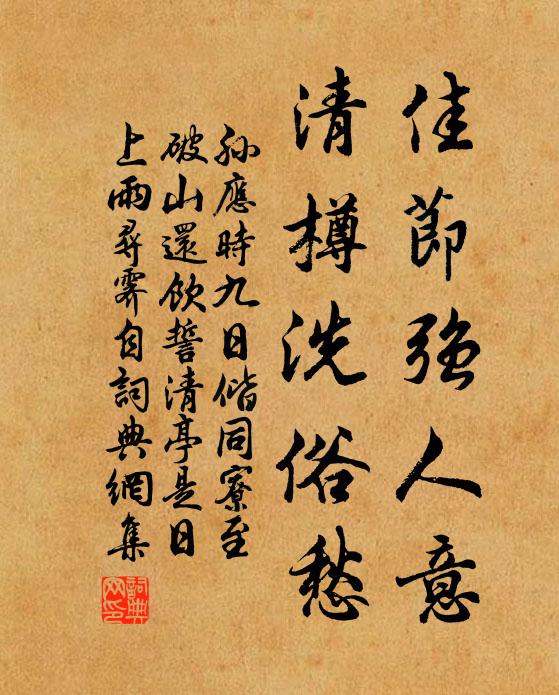 佳節強人意
清樽洗俗愁
孫應時九日偕同寮至
破山還飲誓清亭是日
上雨尋霽自詞典網集
詞典
网印